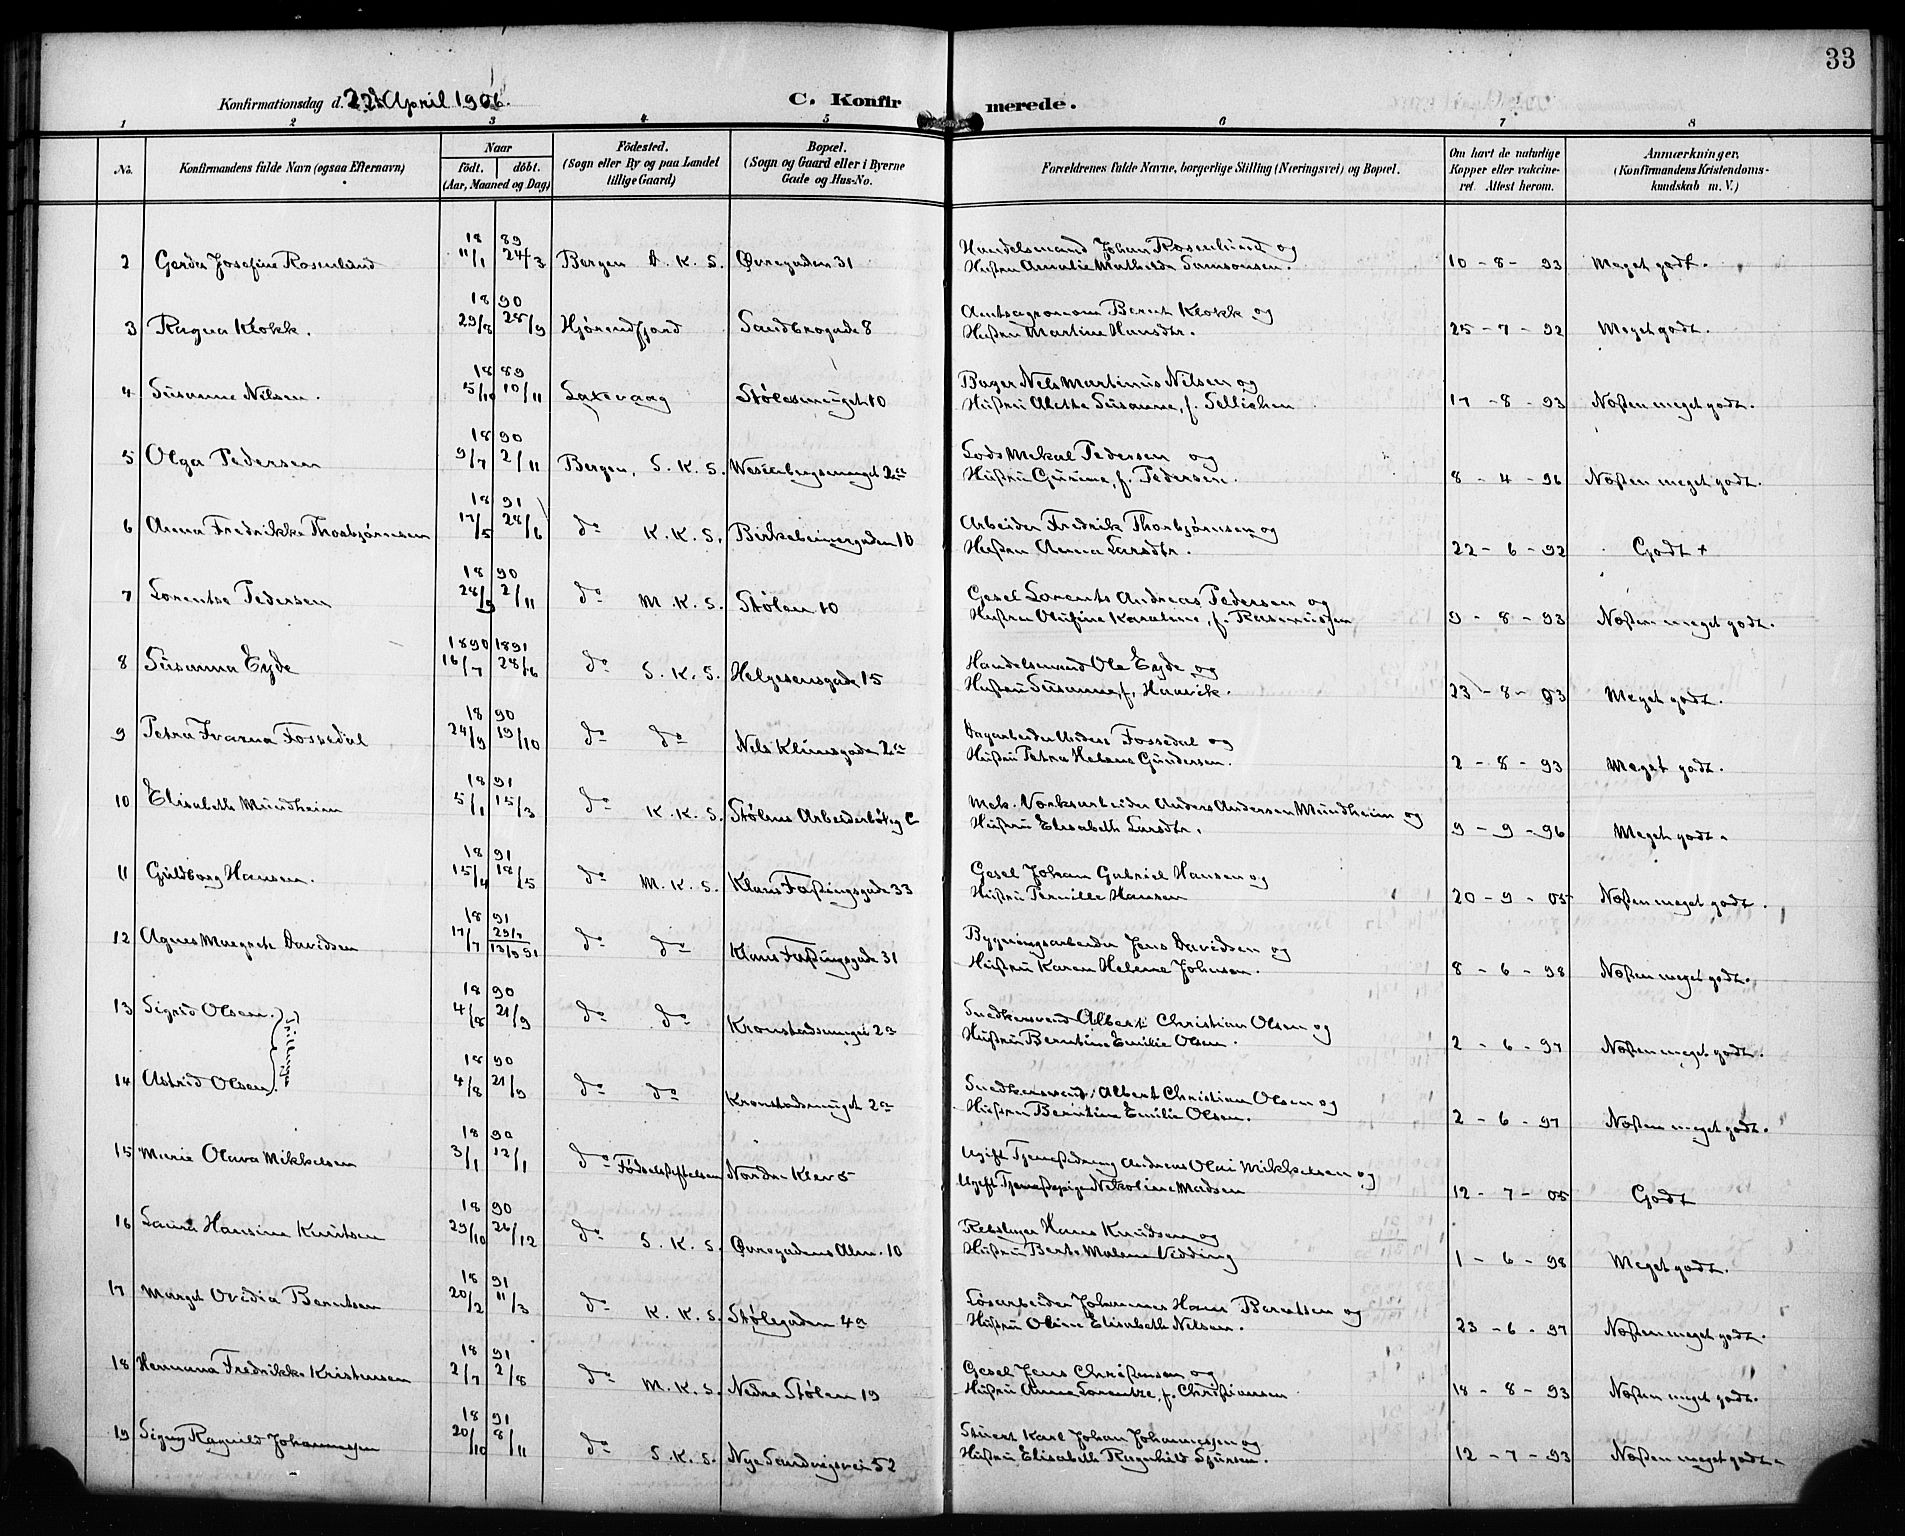 33
Konfirmationsdag d. 22de April 1906.
C. Konfirmerede.
1 2 3 4 5 6 7 8
No.
Konfirmandens fulde Navn (ogsaa Efternavn)
Naar
födt. döbt.
(Aar, Maaned og Dag)
Födested.
(Sogn eller By og paa Landet
tillige Gaard)
Bopæl.
(Sogn og Gaard eller i Byerne
Gade og Hus-No.
Forældrenes fulde Navne, borgerlige Stilling (Næringsvei) og Bopæl.
Om havt de naturlige
Kopper eller vakcine-
ret. Attest herom.
Anmærkninger.
(Konfirmandens Kristendoms-
kundskab m. V.)
18 89
2 Gerda Josefine Rosenlund 11/1 24/3 Bergen D. K. S. Øvregaden 31 Handelsmand Johan Rosenlund og
Hustru Amalie Mathilde Samsonsen. 10 - 8 - 93 Meget godt.
18 90
3 Ragna Klokk. 29/8 28/9 Hjørendfjord Sandbrogade 8 Amtsagronom Bernt Klokk og
Hustru Martine Hansdtr. 25 - 7 - 92 Meget godt.
18 89
4 Susanne Nilsen. 5/10 10/11 Laxevaag Stølesmuget 10 Bager Nels Martinus Nilsen og
Hustru Alethe Susanne, f. Sellichen 17 - 8 - 93 Næsten meget godt.
18 90
5 Olga Pedersen 9/7 2/11 Bergen, S. K. S. Wesenbergsmuget 2a Lods Mekal Pedersen og
Hustru Gurine, f. Pedersen. 8 - 4 - 96 Næsten meget godt.
18 91
6 Anna Fredrikke Thorbjørnsen 17/5 28/6 do K. K. S. Birkebeinergaden 10 Arbeider Fredrik Thorbjørnsen og
Hustru Anna Larsdtr. 22 - 6 - 92 Godt +
18 90
7 Lorentse Pedersen 28/9 2/11 do M. K. S. Stølen 10 Gesel Lorents Andreas Pedersen og
Hustru Olufine Karoline, f. Rasmussen 9 - 8 - 93 Næsten meget godt.
1890 1891
8 Susanna Eyde 16/7 28/6 do S. K. S. Helgesensgade 15 Handelsmand Ole Eyde og
Hustru Susanne, f. Hauvik. 23 - 8 - 93 Meget godt.
18 90
9 Petra Ivarna Fossedal 24/9 19/10 do do Nels Klimsgade 2a Dagarbeider Anders Fossedal og
Hustru Petra Helene Gundersen. 2 - 8 - 93 Meget godt.
18 91
10 Elisabeth Mundheim 5/1 15/3 do K. K. S. Stølens Arbeiderbolig C Mek. Værksarbeider Anders Andersen Mundheim og
Hustru Elisabeth Larsdtr. 9 - 9 - 96 Meget godt.
18 91
11 Guldborg Hansen. 15/4 18/5 do M. K. S. Klaus Fastingsgade 33 Gesel Johan Gabriel Hansen og
Hustru Pernille Hansen 20 - 9 - 05 Næsten meget godt.
18 91
12 Agnes Margrete Davidsen 17/7 29/7 13/9 91 do do Klaus Fastingsgade 31 Bygningsarbeider Jens Davidsen og
Hustru Karen Helene Johnsen. 8 - 6 - 98 Næsten meget godt.
18 90
13 Sigrid Olsen. 4/8 21/9 do do Kronstadsmuget 2a Snedkersvend Albert Christian Olsen og
Hustru Berntine Emilie Olsen. 2 - 6 - 97 Næsten meget godt.
Tvillinge
18 90
14 Astrid Olsen. 4/8 21/9 do do Kronstadsmuget 2a Snedkersvend Albert Christian Olsen og
Hustru Berntine Emilie Olsen. 2 - 6 - 97 Næsten meget godt.
18 90
15 Marie Olava Mikkelsen 3/1 12/1 do Fødselsstiftelsen Nordre Klev 5 Ugift Tjenestedreng Andreas Olai Mikkelsen og
Ugift Tjenestepige Nikoline Madsen 12 - 7 - 05 Godt
18 90
16 Laura Hansine Knutsen 29/10 26/12 do S. K. S. Øvregadens Alm. 10 Rebslager Hans Knudsen og
Hustru Berte Malene Vedding 1 - 6 - 98 Meget godt.
18 91
17 Marget Ovidia Berntsen 20/2 11/3 do K. K. S. Stølegaden 4a Løsarbeider Johannes Hans Berntsen og
Hustru Oline Elisabeth Nilsen. 23 - 6 - 97 Næsten meget godt.
18 91
18 Hermana Fredrikke Kristensen 2/7 2/8 do M. K. S. Nedre Stølen 19 Gesel Jens Christensen og
Hustru Anna Lorentze, f. Christiansen 18 - 8 - 93 Næsten meget godt.
18 91
19 Signy Ragnild Johannessen 20/10 8/11 do S. K. S. Nye Sandvigsvei 52 Stuert Karl Johan Johannessen og
Hustru Elisabeth Ragnhild Sjursen. 12 - 7 - 93 Næsten meget godt.